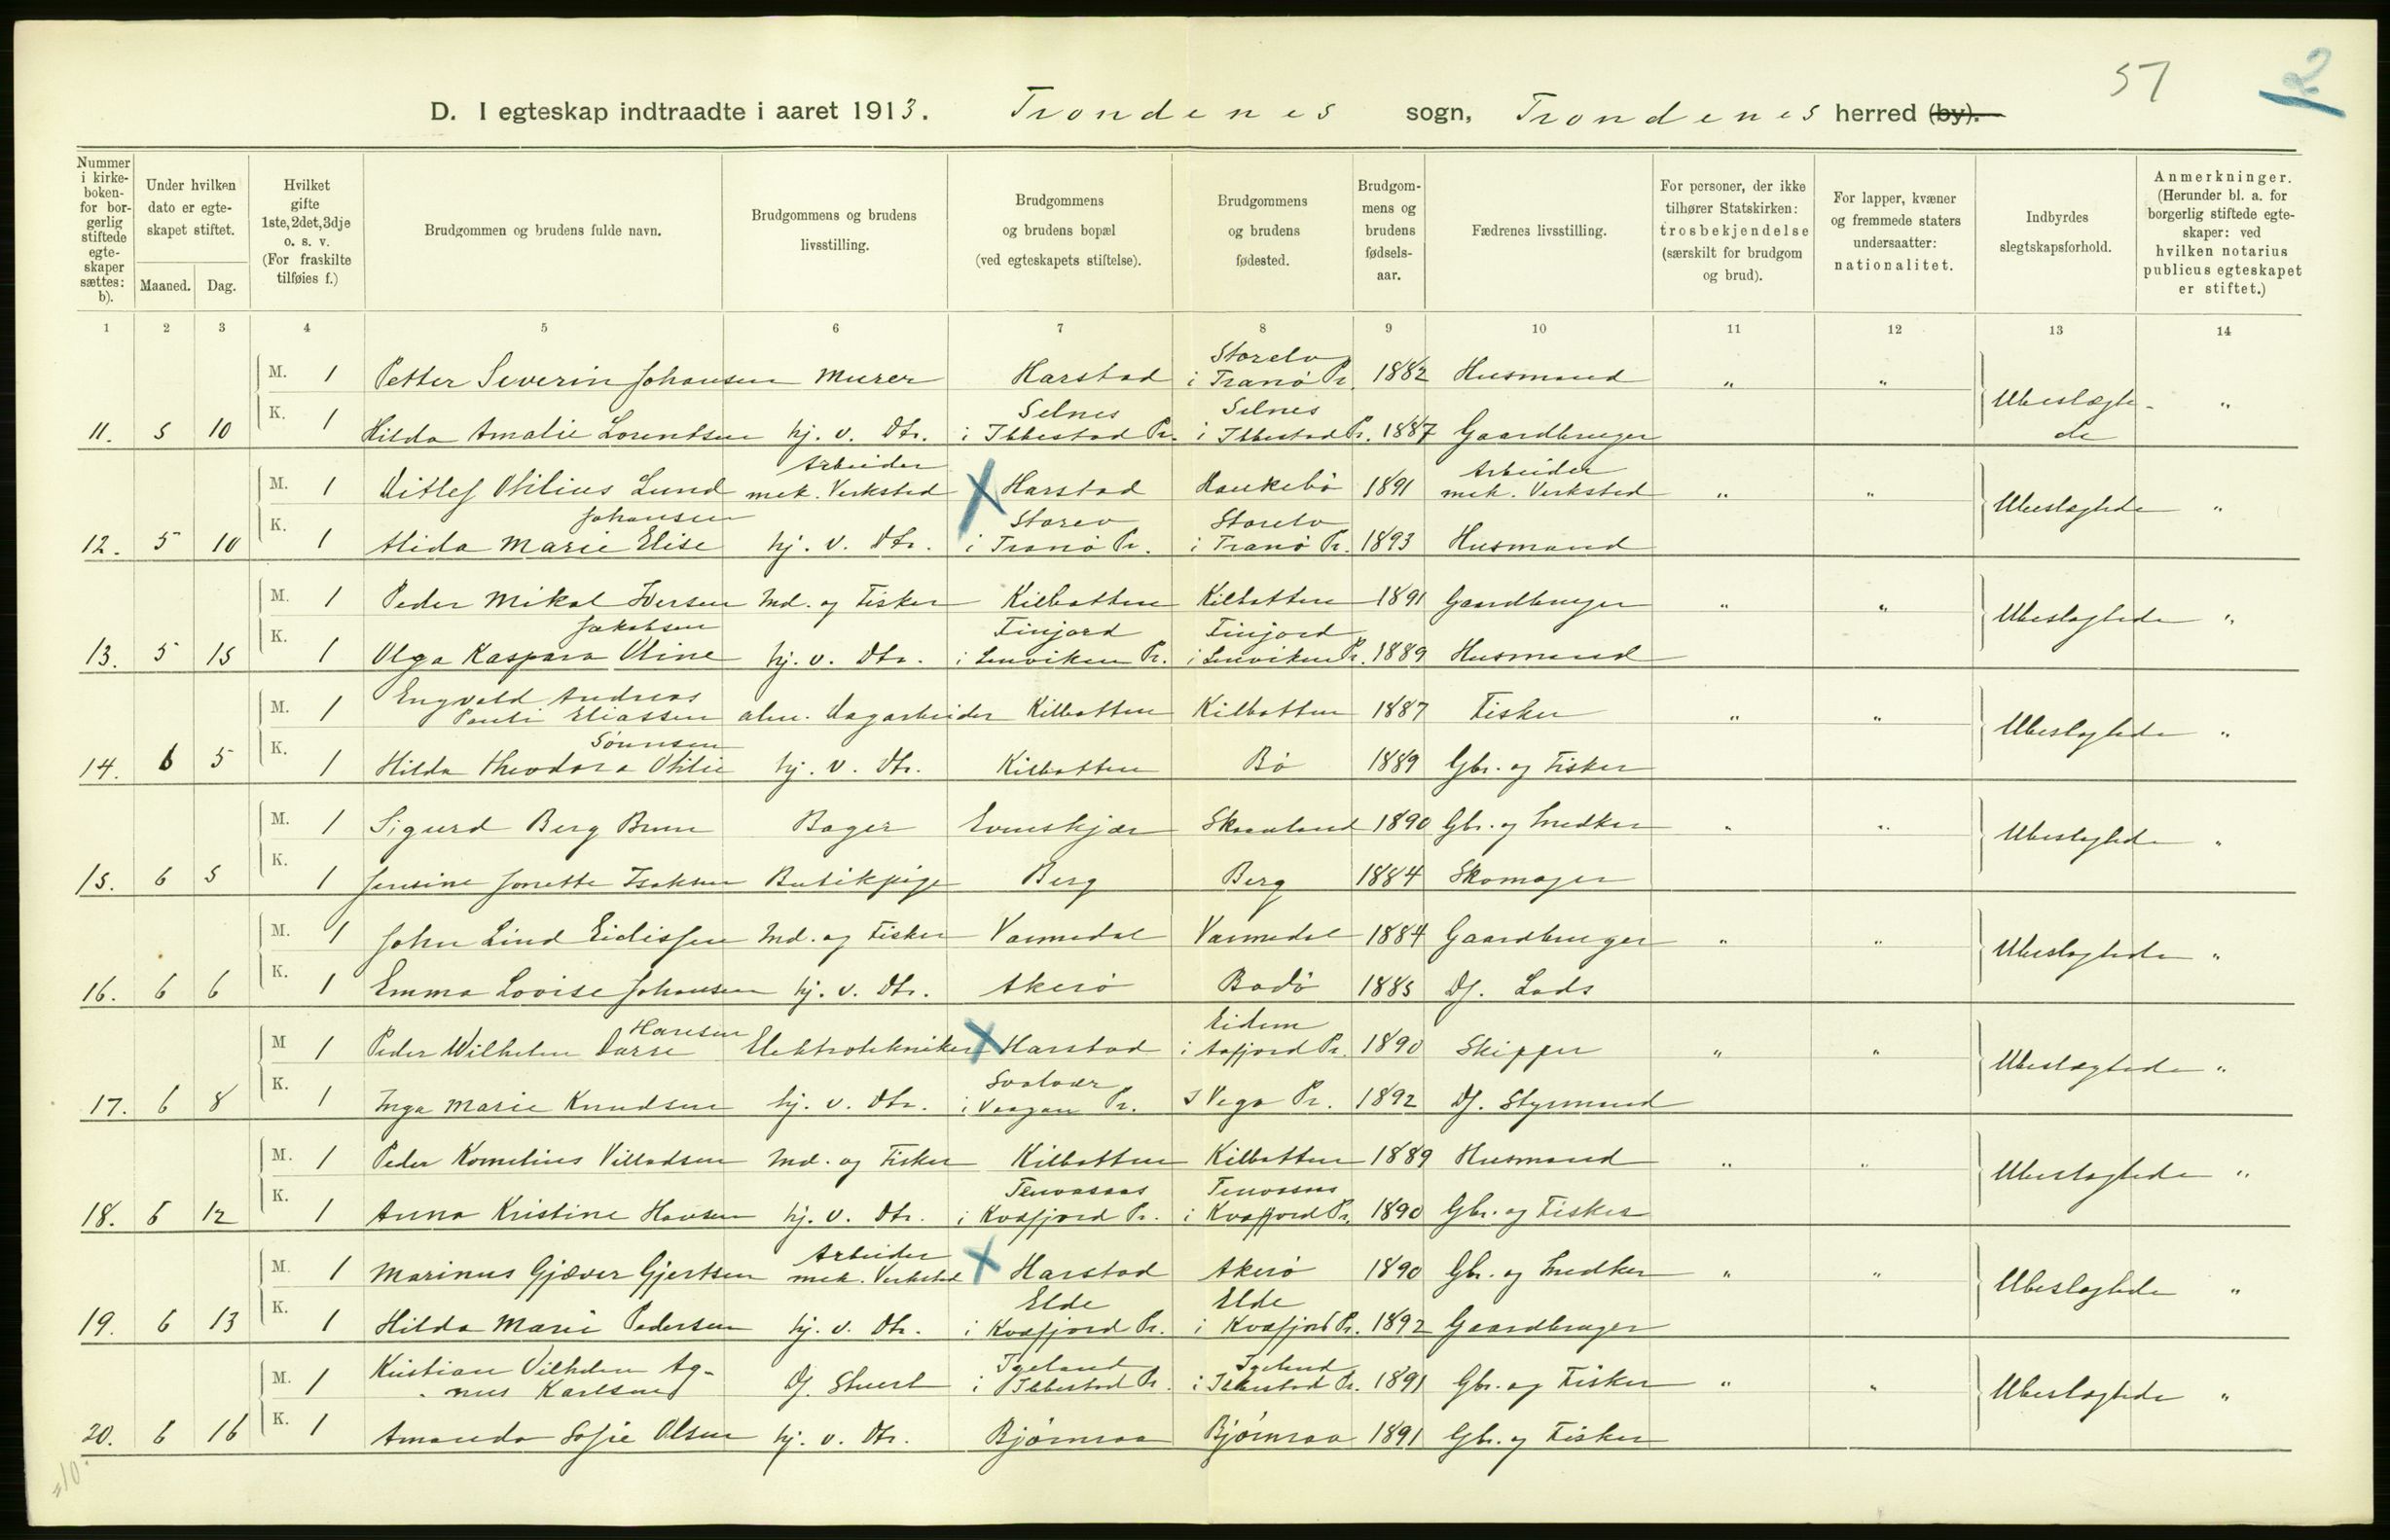 57 2
D. I egteskap indtraadte i aaret 1913. Trondenes sogn, Trondenes herred (by).
Nummer i kirke-boken- for bor-gerlig stiftede egte-skaper sættes: b).
Under hvilken dato er egte-skapet stiftet.
Maaned. Dag.
Hvilket gifte 1ste, 2det, 3dje o. s. v. (For fraskilte tilføies f.)
Brudgommen og brudens fulde navn.
Brudgommens og brudens livsstilling.
Brudgommens og brudens bopæl (ved egteskapets stiftelse).
Brudgommens og brudens fødested.
Brudgom-mens og brudens fødsels-aar.
Fædrenes livsstilling.
For personer, der ikke tilhører Statskirken: trosbekjendelse (særskilt for brudgom og brud).
For lapper, kvæner og fremmede staters undersaatter: nationalitet.
Indbyrdes slegtskapsforhold.
Anmerkninger. (Herunder bl. a. for borgerlig stiftede egte-skaper: ved hvilken notarius publicus egteskapet er stiftet.)
1 2 3 4 5 6 7 8 9 10 11 12 13 14
M. 1 Petter Severin Johansen Murer Harstad Storelv i Tranø Pr. 1882 Husmand " "
11. 5 10 K. 1 Hilda Amalie Lorentsen hj. v. Dtr. Selnes i Ibbestad Pr. Selnes i Ibbestad Pr. 1887 Gaardbruger Ubeslægte-de "
M. 1 Ditlef Otilius Lund Arbeider mek. Verksted Harstad Haukebø 1891 Arbeider mek. Verksted " "
12. 5 10 K. 1 Alida Marie Elise Johansen hj. v. Dtr. Storev i Tranø Pr. Storelv i Tranø Pr. 1893 Husmand Ubeslægtede "
M. 1 Peder Mikal Iversen Ind. og Fisker Kilbotten Kilbotten 1891 Gaardbruger " "
13. 5 15 K. 1 Olga Kaspara Oline Jakobsen hj. v. Dtr. Finjord i Lenviken Pr. Finjord i Lenviken Pr. 1889 Husmand Ubeslægtede "
M. 1 Engvald Andreas Pauli Eliassen alm. Dagarbeider Kilbotten Kilbotten 1887 Fisker " "
14. 6 5 K. 1 Hilda Theodora Otilie Sørensen hj. v. Dtr. Kilbotten Bø 1889 Gbr. og Fisker Ubeslægtede "
M. 1 Sigurd Berg Brun Bager Evenskjær Skaanland 1890 Gbr. og Snedker " "
15. 6 5 K. 1 Jensine Jonette Isaksen Butikpige Berg Berg 1884 Skomager Ubeslægtede "
M. 1 John Lind Eidissen Ind. og Fisker Varmedal Varmedal 1884 Gaardbruger " "
16. 6 6 K. 1 Emma Lovise Johansen hj. v. Dtr. Akerø Bodø 1885 Df. Lods Ubeslægtede "
M 1 Peder Wilhelm Darse Hansen Elektrotekniker Harstad Eidem i Aafjord Pr. 1890 Skipper " "
17. 6 8 K. 1 Inga Marie Knudsen hj. v. Dtr. Svolvær i Vaagan Pr. I Vega Pr. 1892 Df. Styrmand Ubeslægtede "
M. 1 Peder Kornelius Villadsen Ind. og Fisker Kilbotten Kilbotten 1889 Husmand " "
18. 6 12 K. 1 Anna Kristine Hansen hj. v. Dtr. i Kvæfjord Pr. i Kvæfjord Pr. 1890 Gbr. og Fisker Ubeslægtede "
M. 1 Marinus Gjæver Gjertsen Arbeider mek. Verksted Harstad Akerø 1890 Gbr. og Snedker " "
19. 6 13 K. 1 Hilda Marie Pedersen hj. v. Dtr. Elde i Kvæfjord Pr. Elde i Kvæfjord Pr. 1892 Gaardbruger Ubeslægtede "
M. 1 Kristian Vilhelm Ag-nus Karlsen Df. Stuert Igeland i Ibbestad Pr. Igeland i Ibbestad Pr. 1891 Gbr. og Fisker " "
20. 6 16 K. 1 Amanda Sofie Olsen hj. v. Dtr. Bjørnraa Bjørnraa 1891 Gbr. og Fisker Ubeslægtede "